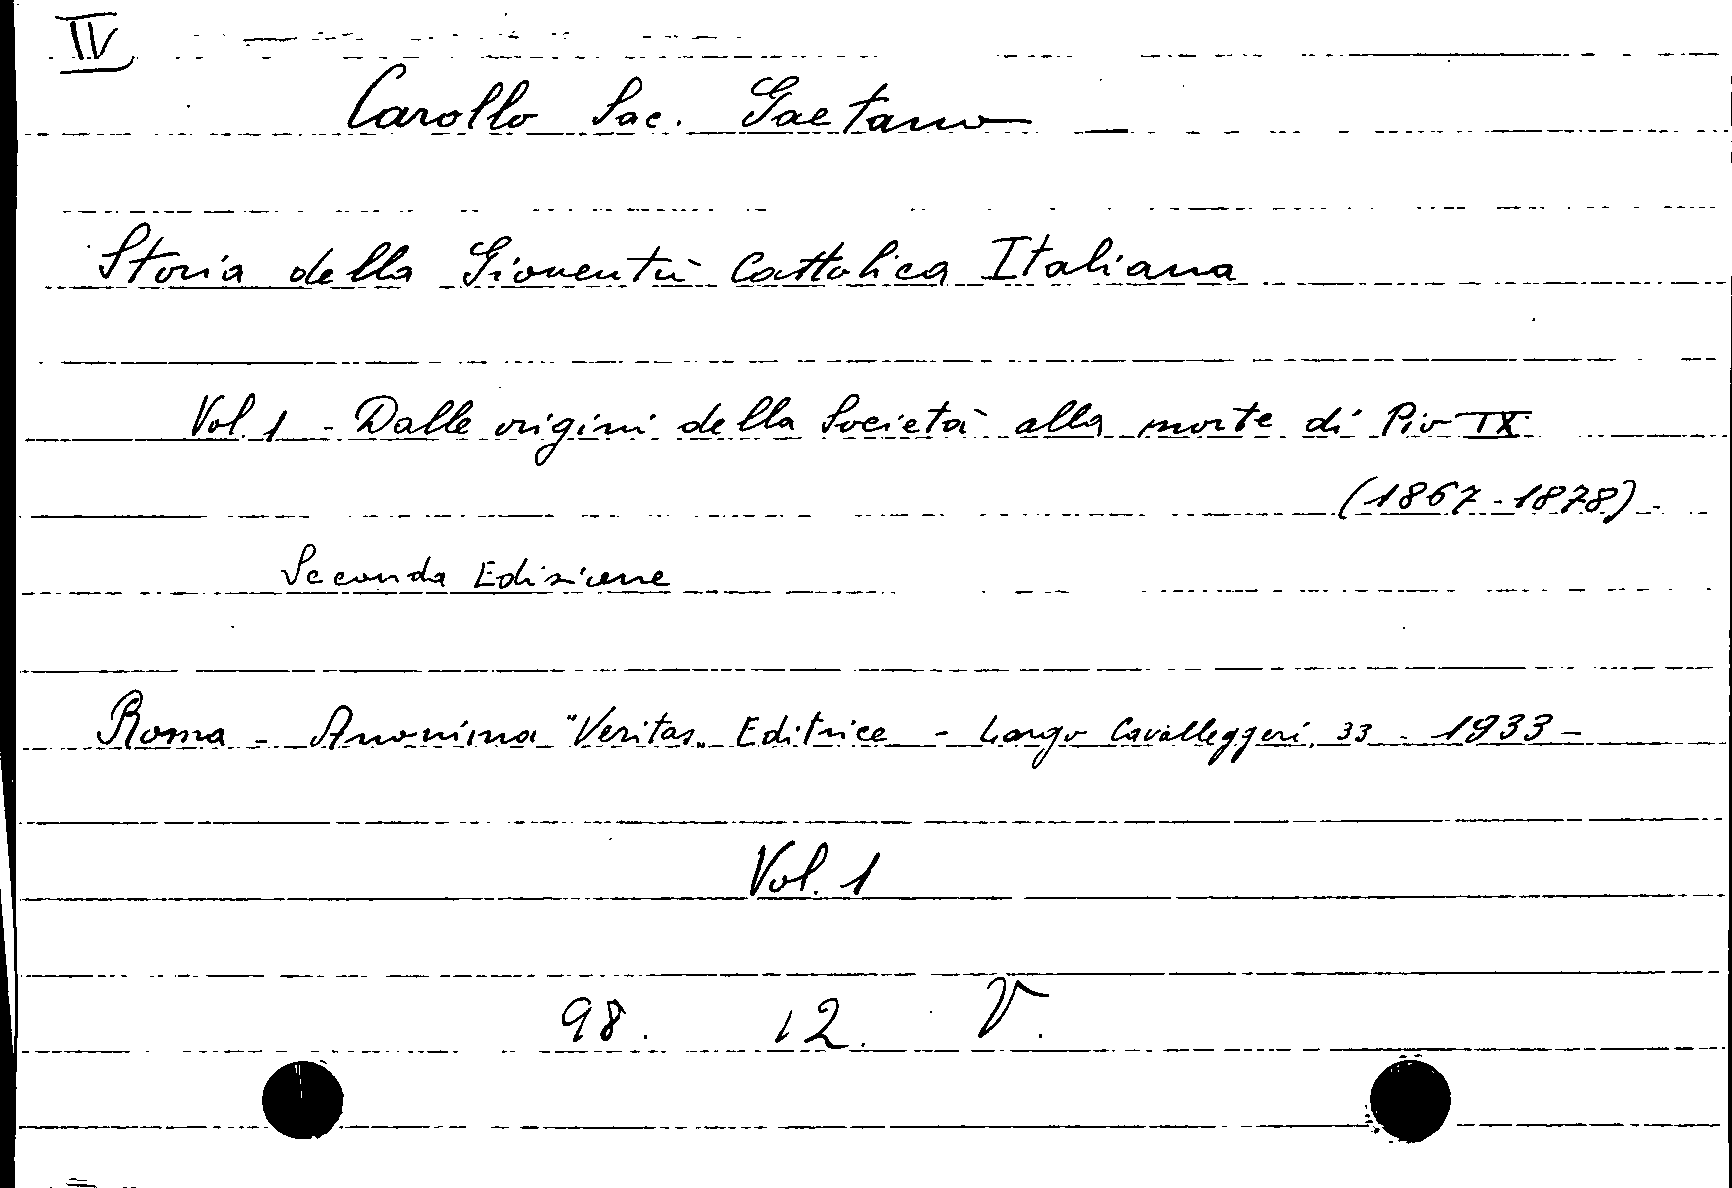 IV
Carollo Sac. Gaetano
Storia della Gioventù Cattolica Italiana
Vol. 1 - Dalle origini della Società alla morte di Pio IX
(1867-1878)
Seconda Edizione
Roma - Anonima "Veritas" Editrice - Largo Cavalleggeri, 33 - 1933 -
Vol. 1
98. 12. V.